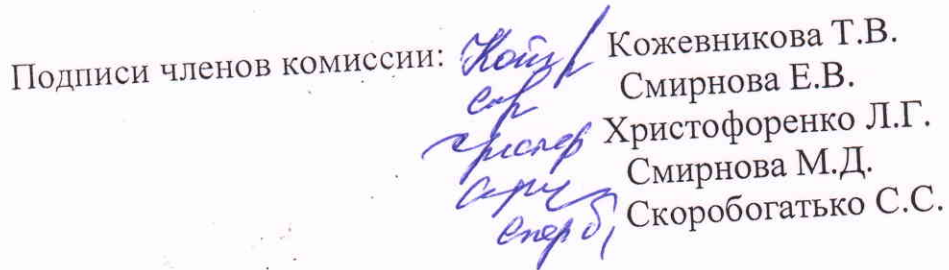 Подписи членов комиссии: Кожевникова Т.В.
Смирнова Е.В.
Христофоренко Л.Г.
Смирнова М.Д.
Скоробогатько С.С.